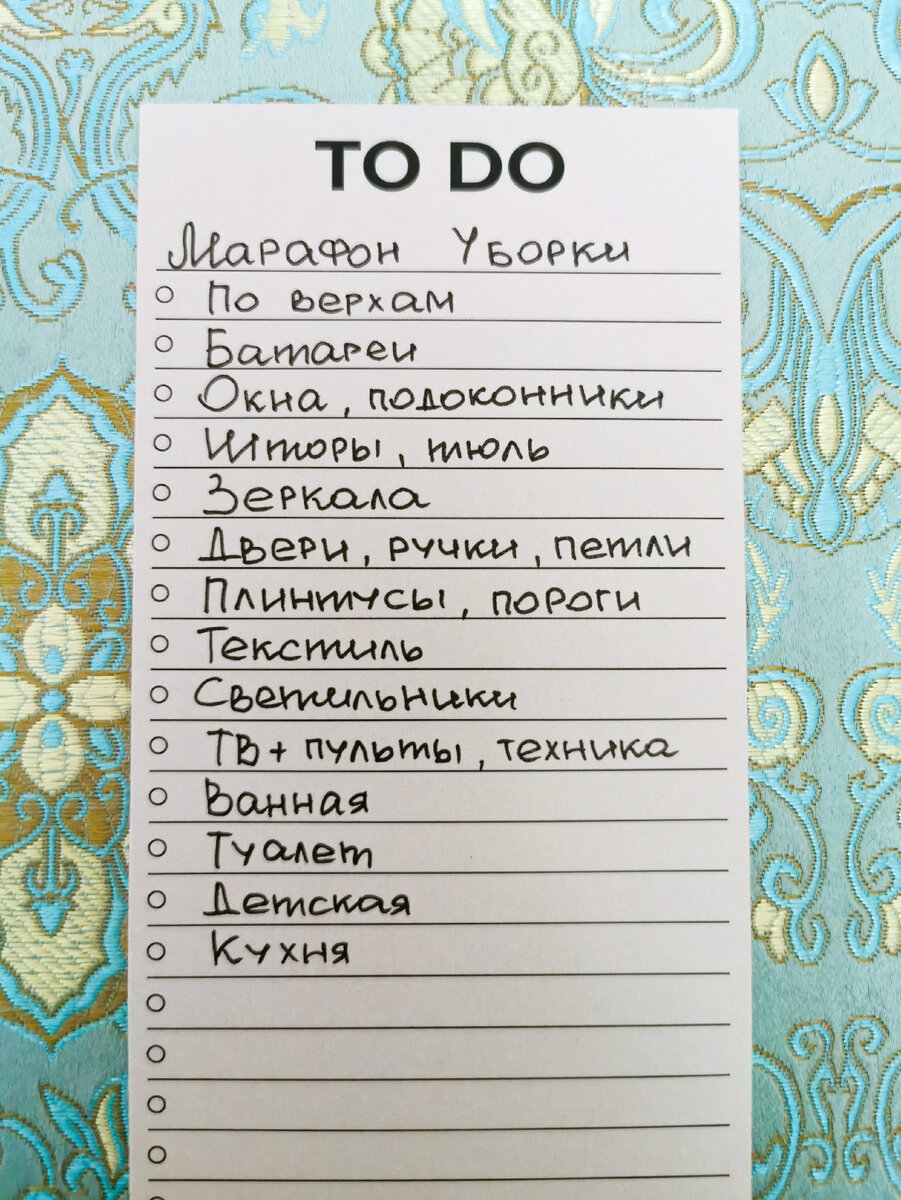 TO DO
Марафон Уборки
По верхам
Батареи
Окна, подоконники
Шторы, тюль
Зеркала
Двери, ручки, петли
Плинтусы, пороги
Текстиль
Светильники
ТВ + пульты, техника
Ванная
Туалет
Детская
Кухня